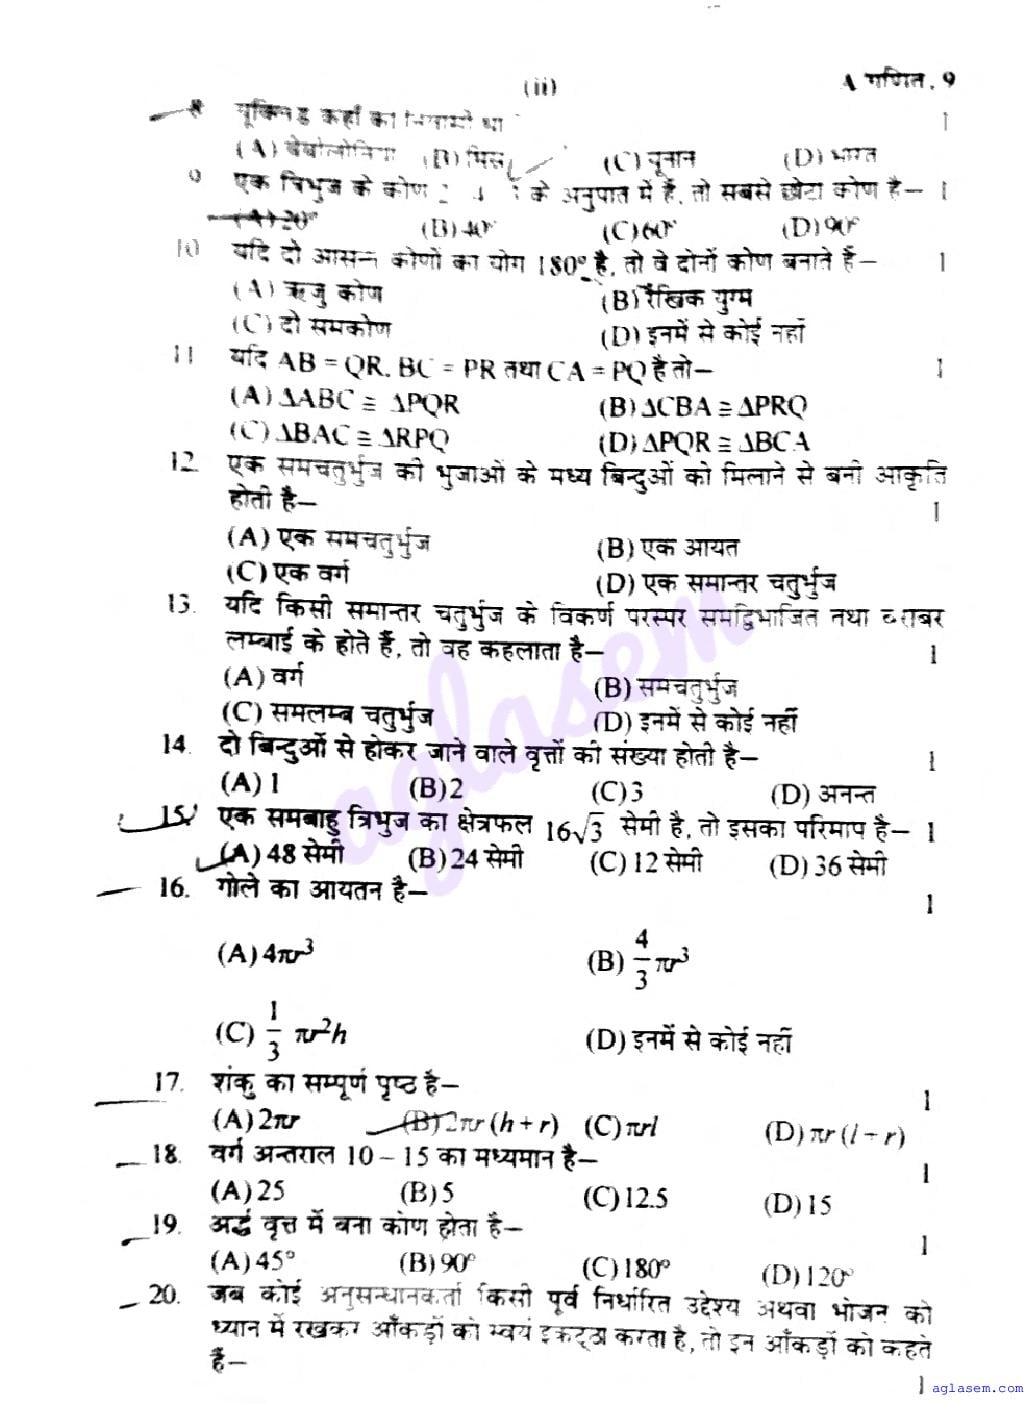 (ii)
A गणित, 9
8 यूक्लिड कहाँ का निवासी था 1
(A) बेबीलोनिया (B) मिस्र (C) यूनान (D) भारत
9 एक त्रिभुज के कोण 2 4 के अनुपात में हैं, तो सबसे छोटा कोण है– 1
(A) 20° (B) 40° (C) 60° (D) 90°
10 यदि दो आसन्न कोणों का योग 180° है, तो वे दोनों कोण बनाते हैं– 1
(A) ऋजु कोण (B) रैखिक युग्म
(C) दो समकोण (D) इनमें से कोई नहीं
11 यदि AB = QR, BC = PR तथा CA = PQ है तो– 1
(A) ΔABC ≅ ΔPQR (B) ΔCBA ≅ ΔPRQ
(C) ΔBAC ≅ ΔRPQ (D) ΔPQR ≅ ΔBCA
12. एक समचतुर्भुज की भुजाओं के मध्य बिन्दुओं को मिलाने से बनी आकृति
होती है– 1
(A) एक समचतुर्भुज (B) एक आयत
(C) एक वर्ग (D) एक समान्तर चतुर्भुज
13. यदि किसी समान्तर चतुर्भुज के विकर्ण परस्पर समद्विभाजित तथा बराबर
लम्बाई के होते हैं, तो वह कहलाता है– 1
(A) वर्ग (B) समचतुर्भुज
(C) समलम्ब चतुर्भुज (D) इनमें से कोई नहीं
14. दो बिन्दुओं से होकर जाने वाले वृत्तों की संख्या होती है– 1
(A) 1 (B) 2 (C) 3 (D) अनन्त
15. एक समबाहु त्रिभुज का क्षेत्रफल 16√3 सेमी है, तो इसका परिमाप है– 1
(A) 48 सेमी (B) 24 सेमी (C) 12 सेमी (D) 36 सेमी
16. गोले का आयतन है– 1
(A) 4πr³ (B) 4/3 πr³
(C) 1/3 πr²h (D) इनमें से कोई नहीं
17. शंकु का सम्पूर्ण पृष्ठ है– 1
(A) 2πr (B) 2πr (h + r) (C) πrl (D) πr (l + r)
18. वर्ग अन्तराल 10 – 15 का मध्यमान है– 1
(A) 25 (B) 5 (C) 12.5 (D) 15
19. अर्द्ध वृत्त में बना कोण होता है– 1
(A) 45° (B) 90° (C) 180° (D) 120°
20. जब कोई अनुसन्धानकर्ता किसी पूर्व निर्धारित उद्देश्य अथवा भोजन को
ध्यान में रखकर आँकड़ों को स्वयं इकट्ठा करता है, तो इन आँकड़ों को कहते
हैं– 1
aglasem
aglasem.com